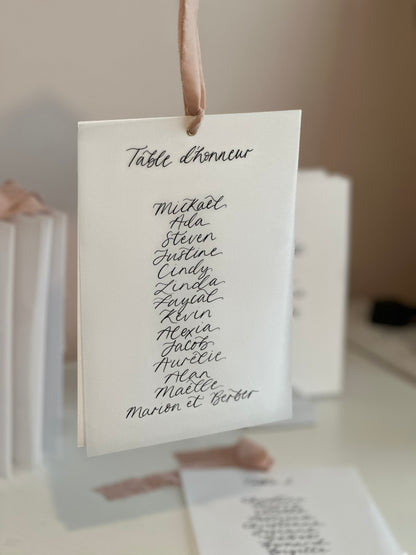 Table d'honneur
Mickaël
Ada
Steven
Justine
Cindy
Linda
Fayçal
Kevin
Alexia
Jacob
Aurélie
Alan
Maëlle
Marion et Berber